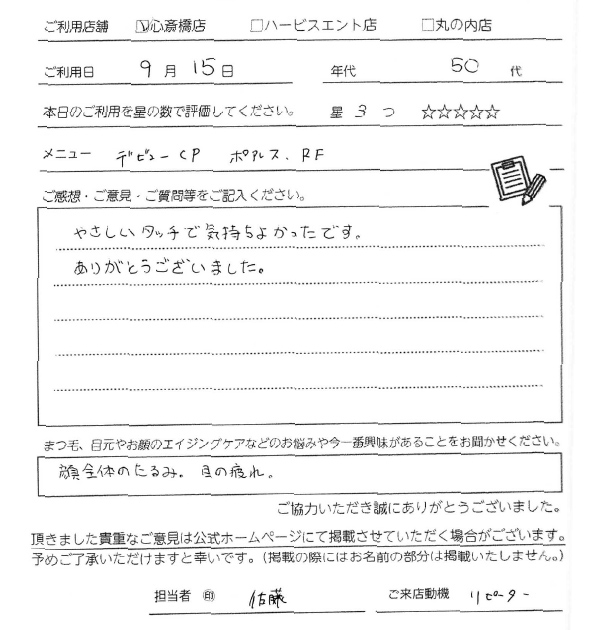 ご利用店舗 ☑心斎橋店 □ハービスエント店 □丸の内店
ご利用日 9月15日 年代 50代
本日のご利用を星の数で評価してください。 星 3 つ ☆☆☆☆☆
メニュー デビューCP ポアレス、RF
ご感想・ご意見・ご質問等をご記入ください。
やさしいタッチで気持ちよかったです。
ありがとうございました。
まつ毛、目元やお顔のエイジングケアなどのお悩みや今一番興味があることをお聞かせください。
顔全体のたるみ。目の疲れ。
ご協力いただき誠にありがとうございました。
頂きました貴重なご意見は公式ホームページにて掲載させていただく場合がございます。
予めご了承いただけますと幸いです。(掲載の際にはお名前の部分は掲載いたしません。)
担当者 ㊞ 佐藤 ご来店動機 リピーター